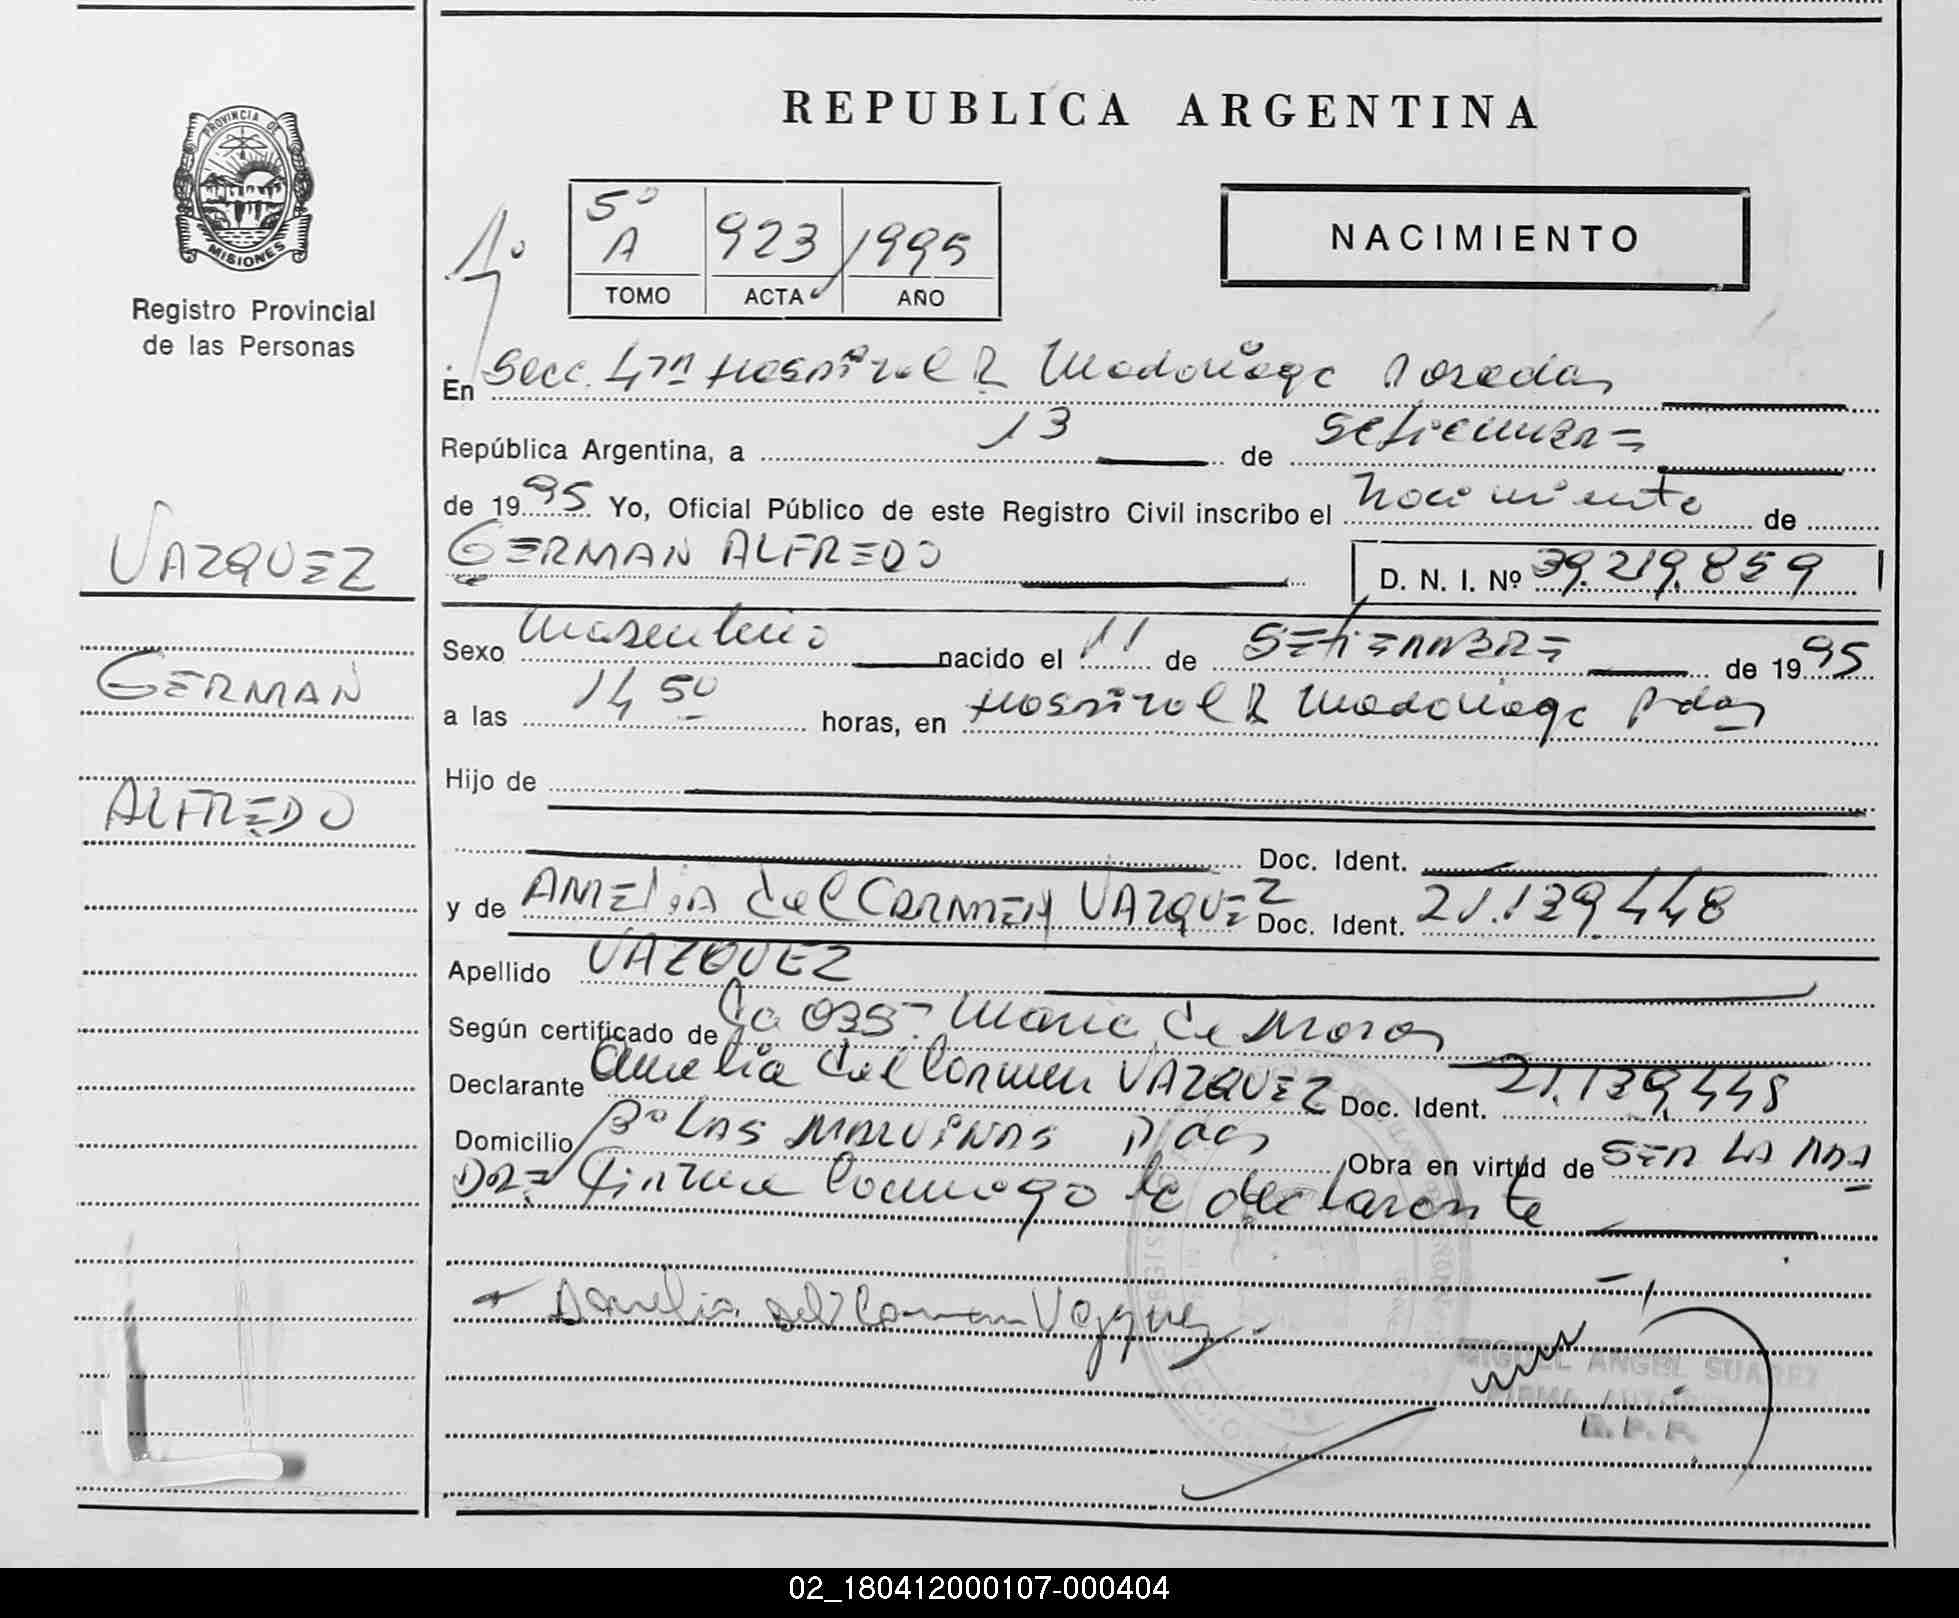 PROVINCIA DE
MISIONES
Registro Provincial
de las Personas
VAZQUEZ
GERMAN
ALFREDO
REPUBLICA ARGENTINA
1º
5º
A 923 1995
TOMO ACTA AÑO
NACIMIENTO
En Secc. 4ta Hospital R Madariaga Posadas
República Argentina, a 13 de Setiembre
de 1995 Yo, Oficial Público de este Registro Civil inscribo el nacimiento de
GERMAN ALFREDO D. N. I. Nº 39.219.859
Sexo masculino nacido el 11 de SETIEMBRE de 1995
a las 14 50 horas, en Hospital R Madariaga Pdas
Hijo de
Doc. Ident.
y de AMELIA del CARMEN VAZQUEZ Doc. Ident. 21.139.448
Apellido VAZQUEZ
Según certificado de la OBST. Maria de Moras
Declarante Amelia del Carmen VAZQUEZ Doc. Ident. 21.139.448
Domicilio Bº LAS MALVINAS Pdas Obra en virtud de SER LA MA
DRE Firma conmigo la declarante
Amelia del Carmen Vazquez
MIGUEL ANGEL SUAREZ
FIRMA
R.P.P.
02_180412000107-000404